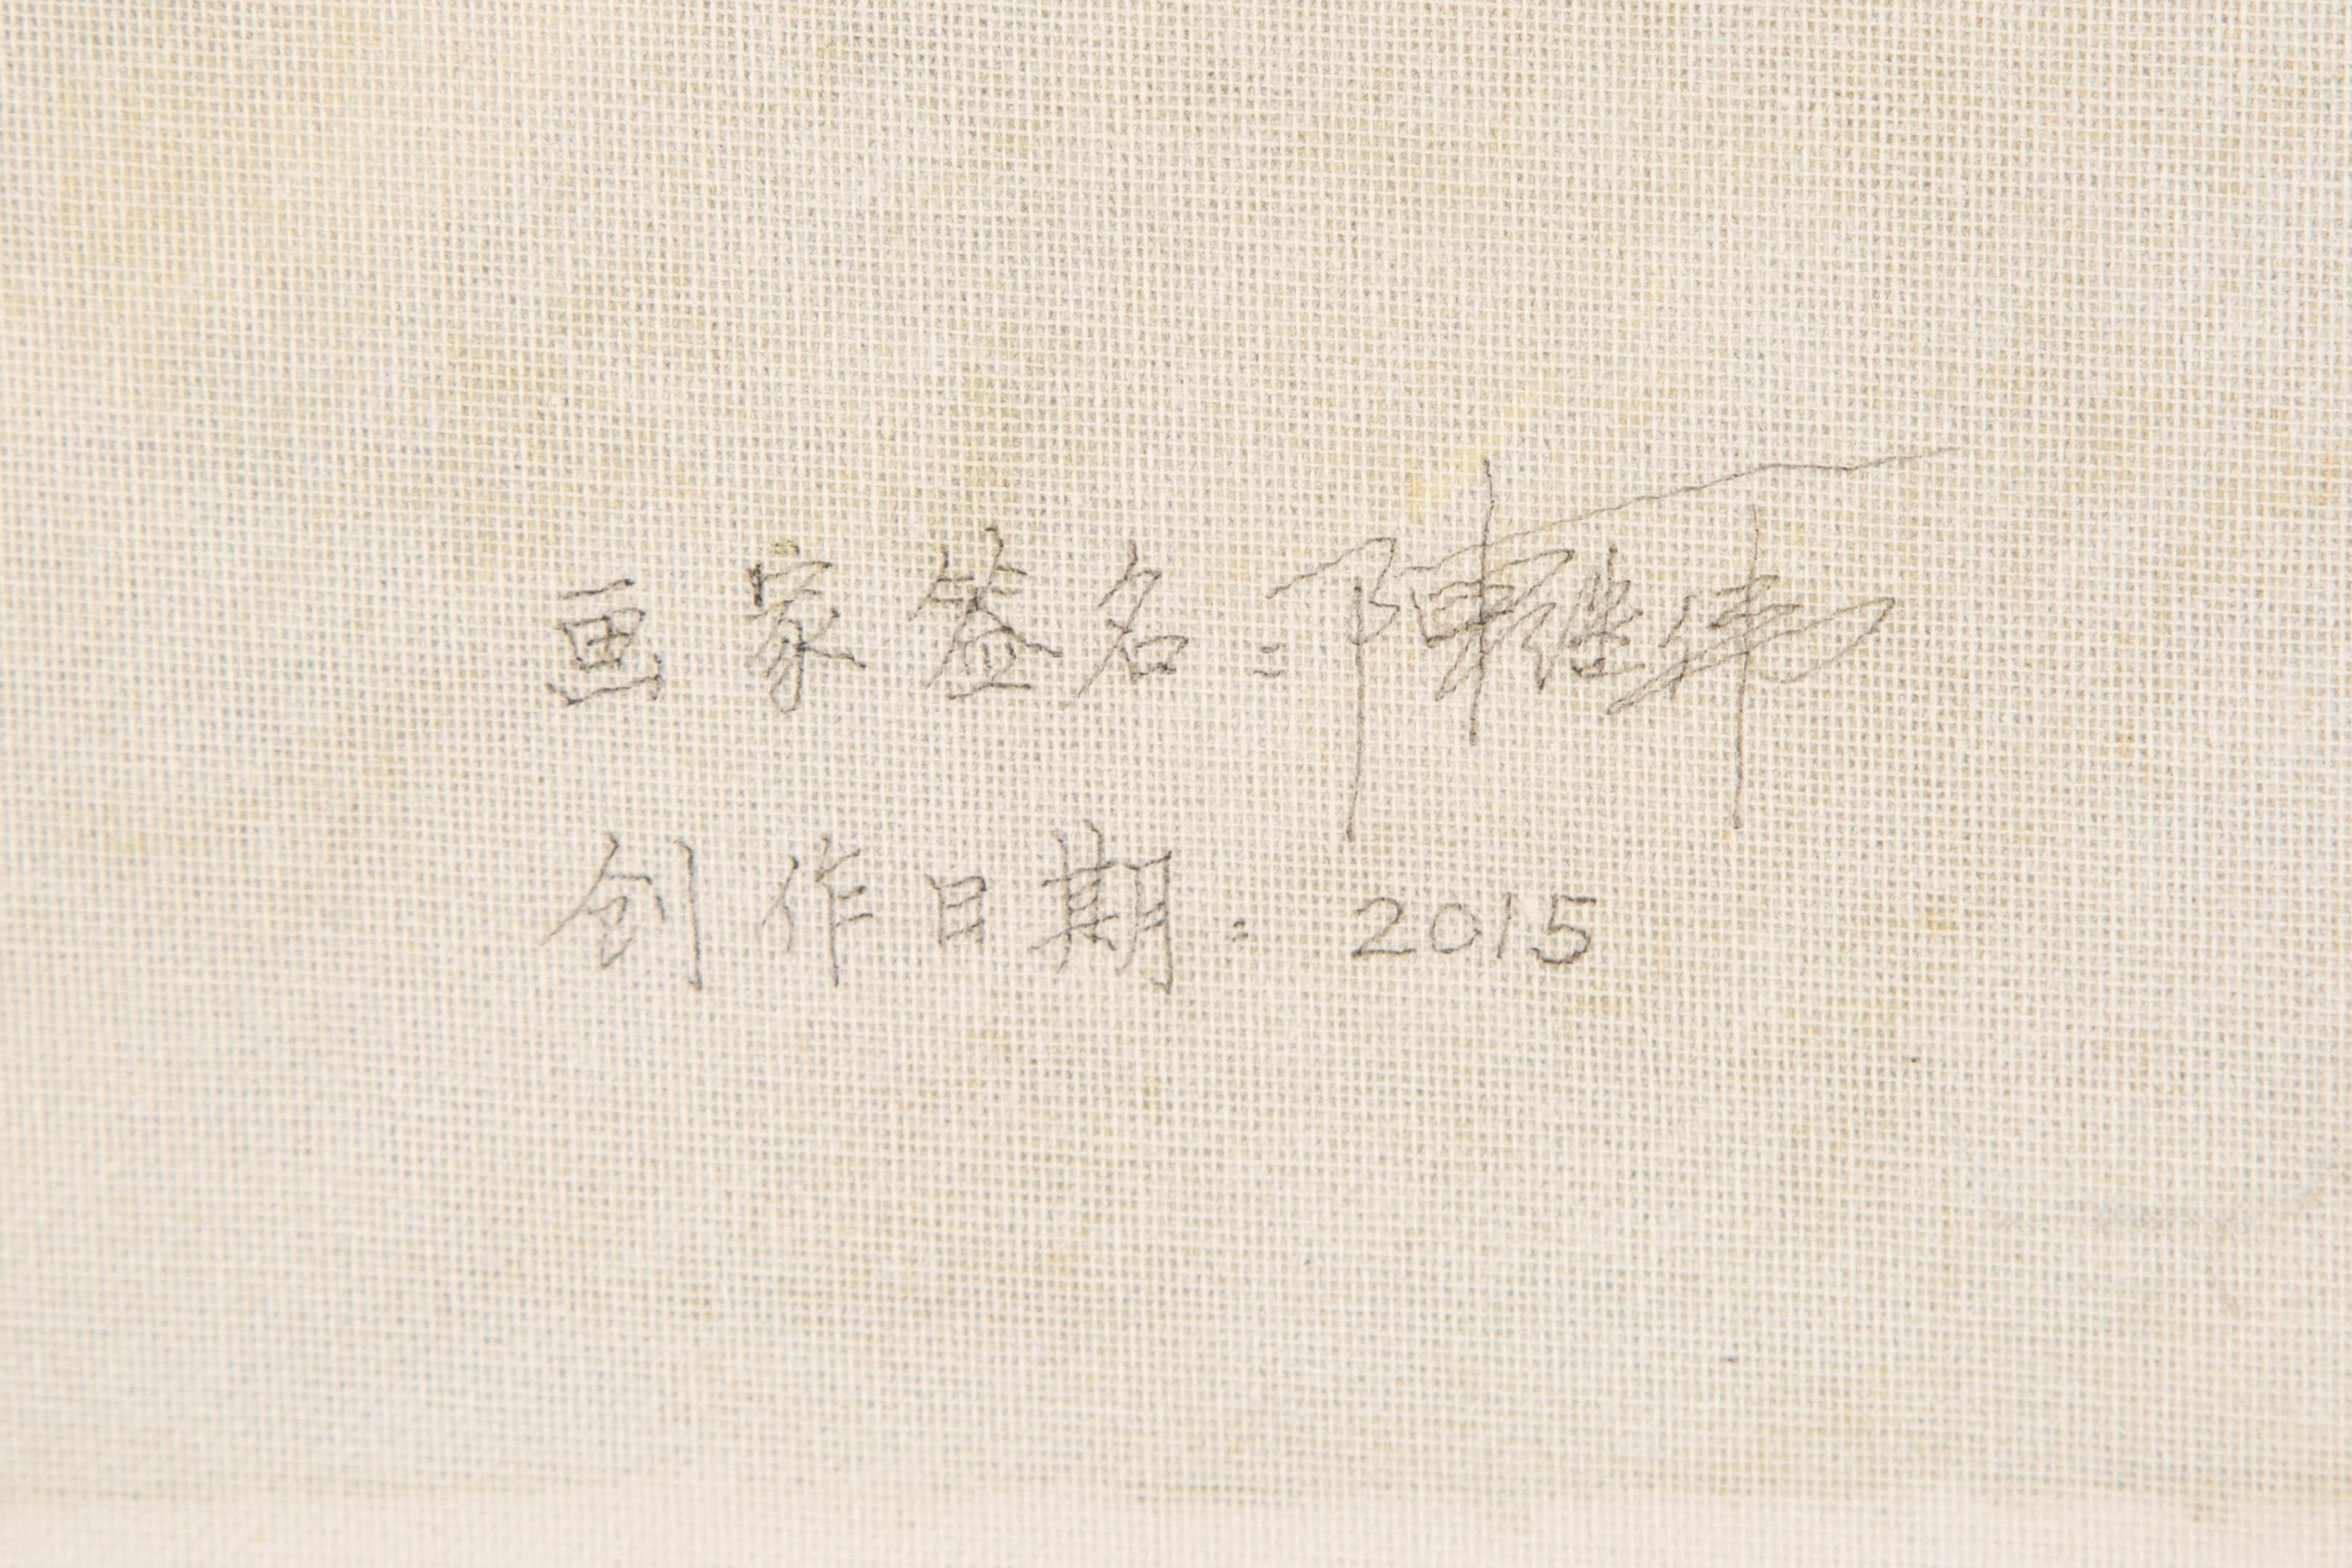 画家签名：陳继伟
创作日期：2015